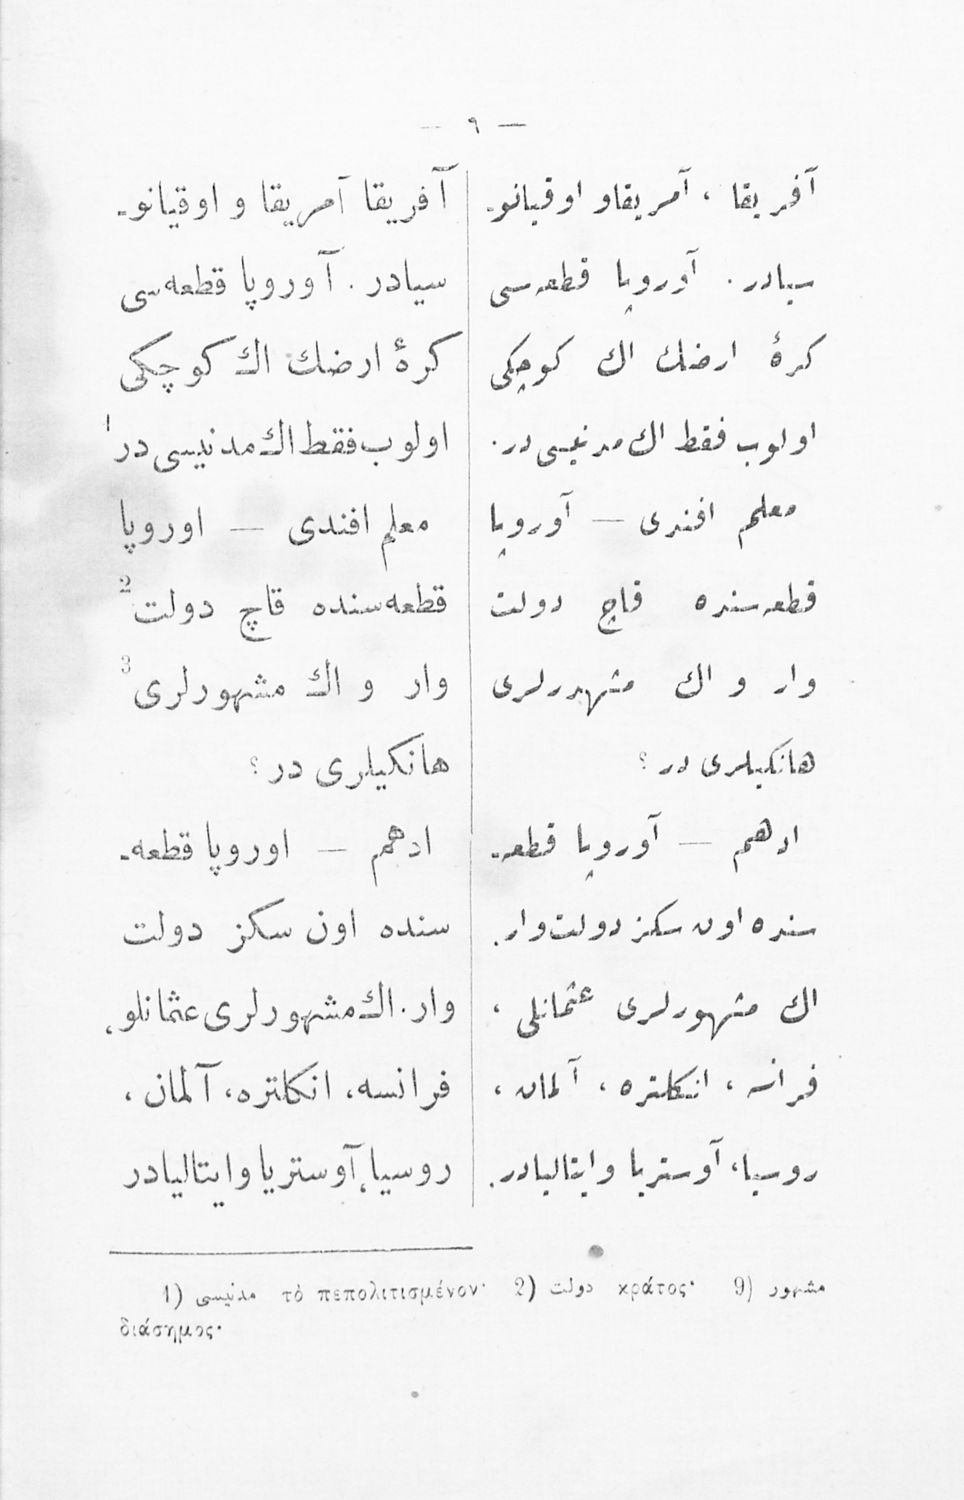 — ٩ —
آفریقا ، آمریقاو اوقیانو-
سیادر . آوروپا قطعه‌سی
كرهٔ ارضك اك كوچكی
اولوب فقط اك مدنیسی در.
معلم افندی — آوروپا
قطعه‌سنده قاچ دولت
وار و اك مشهورلری
هانكیلری در ؟
ادهم — آوروپا قطعه-
سنده اون سكز دولت وار.
اك مشهورلری عثمانلی ،
فرانسه ، انكلتره ، آلمان ،
روسیا، آوستریا وایتالیادر.
آفریقا آمریقا و اوقیانو-
سیادر . آوروپا قطعه‌سی
كرهٔ ارضك اك كوچكی
اولوب فقط اك مدنیسی در¹
معلم افندی — اوروپا
قطعه‌سنده قاچ دولت²
وار و اك مشهورلری³
هانكیلری در ؟
ادهم — اوروپا قطعه-
سنده اون سكز دولت
وار. اك مشهورلری عثمانلو،
فرانسه، انكلتره، آلمان ،
روسیا، آوستریا وایتالیادر
1) مدنیسی τὸ πεπολιτισμένον· 2) دولت κράτος· 9) مشهور
διάσημος·